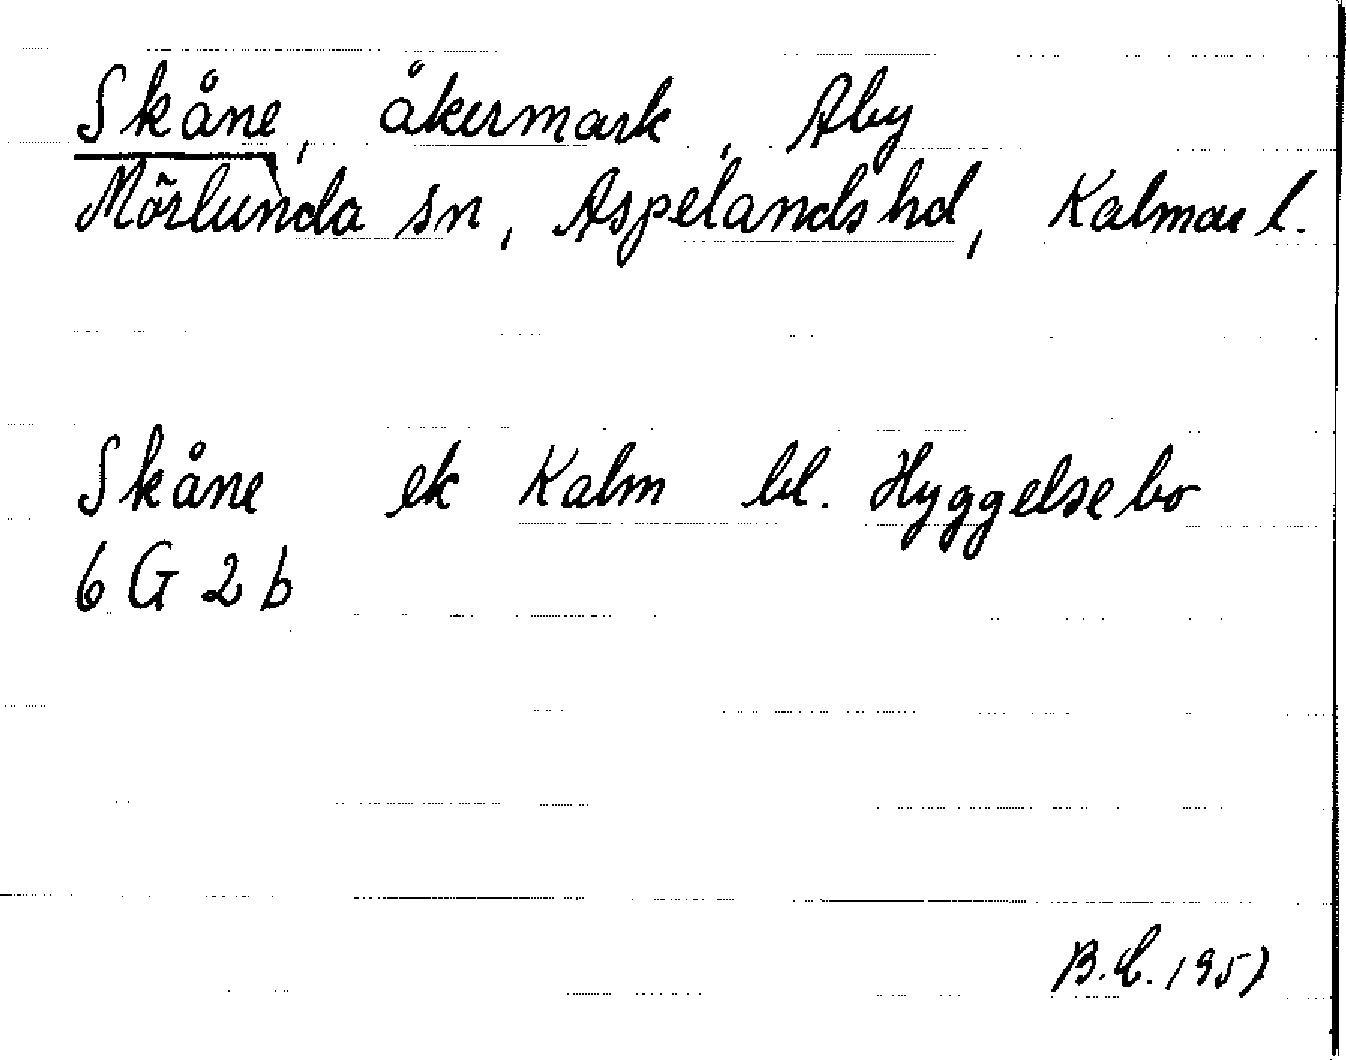 Skåne, åkermark, Åby
Mörlunda sn, Aspelands hd, Kalmar l.
Skåne ek Kalm bl. Hyggelsebo
6 G 2 b
B.E. 1957